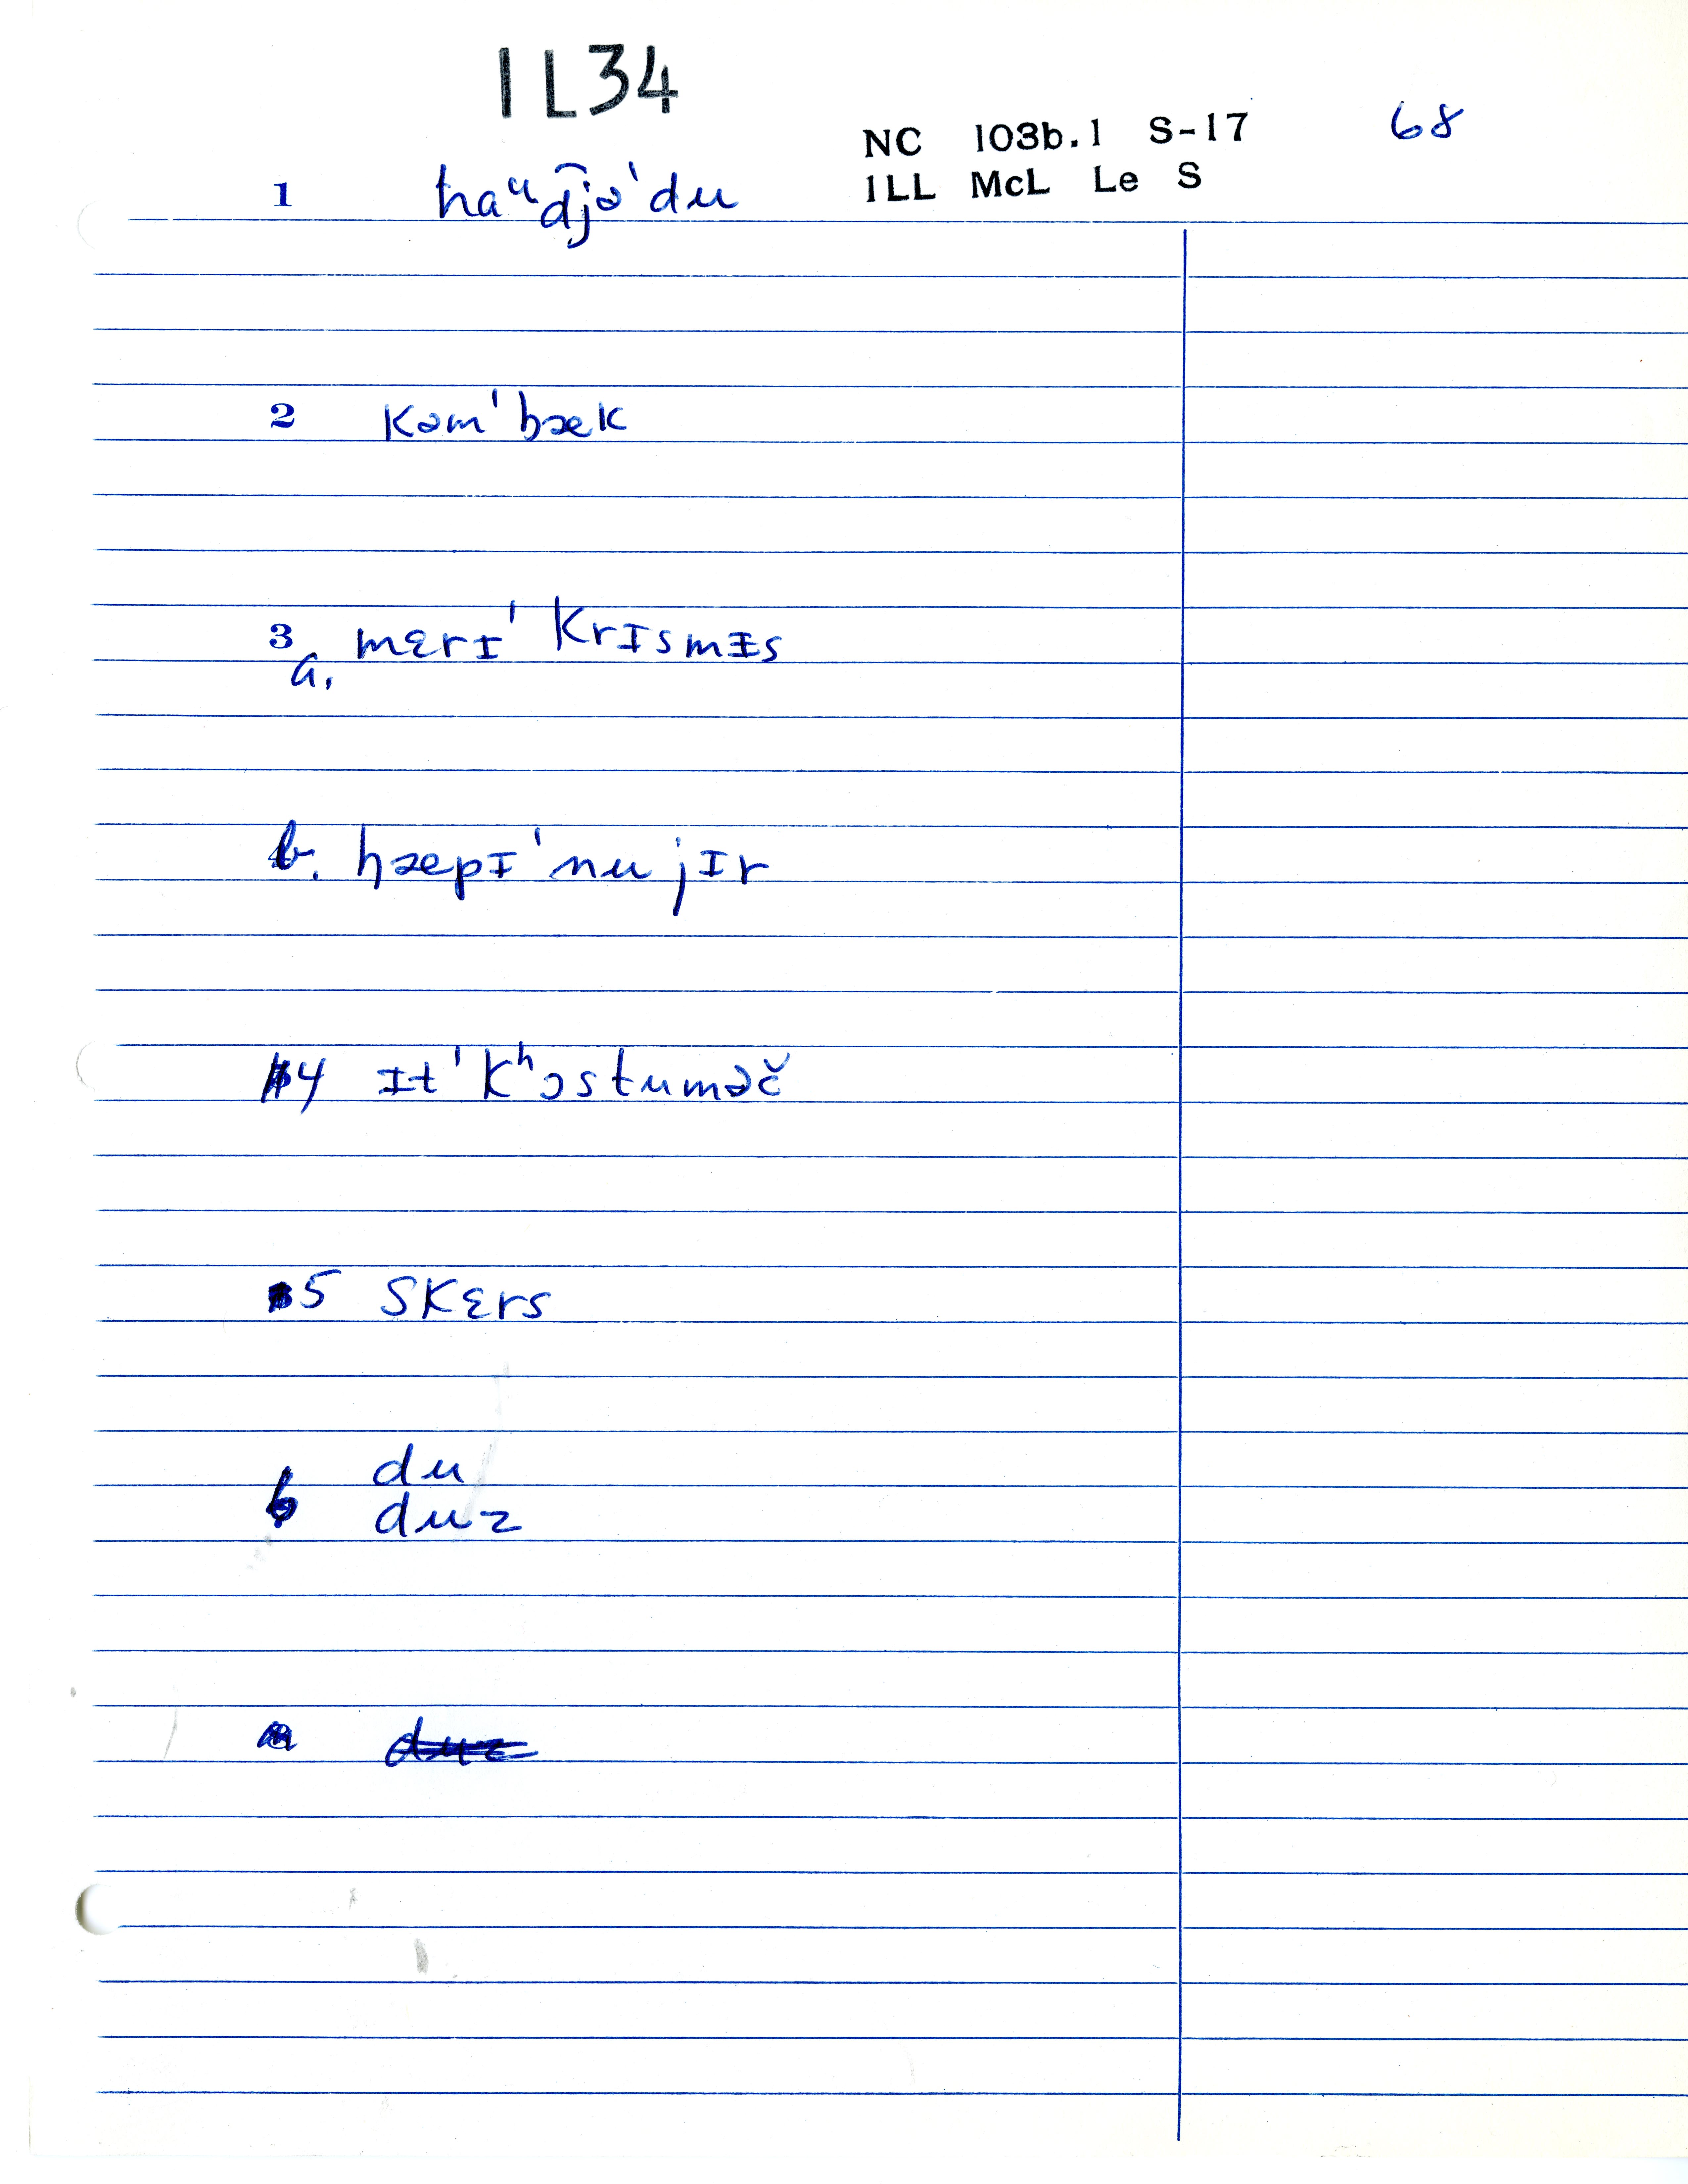 IL34
NC 103b.1 S-17 68
ILL McL Le S
1 haᵘd͡jə'du
2 kəm'bæk
3 a. mɛrɪ' krɪsmɪs
b. hæpɪ'nu jɪr
4 ɪt' kʰɔstuməč
5 skɛrs
6 du
duz